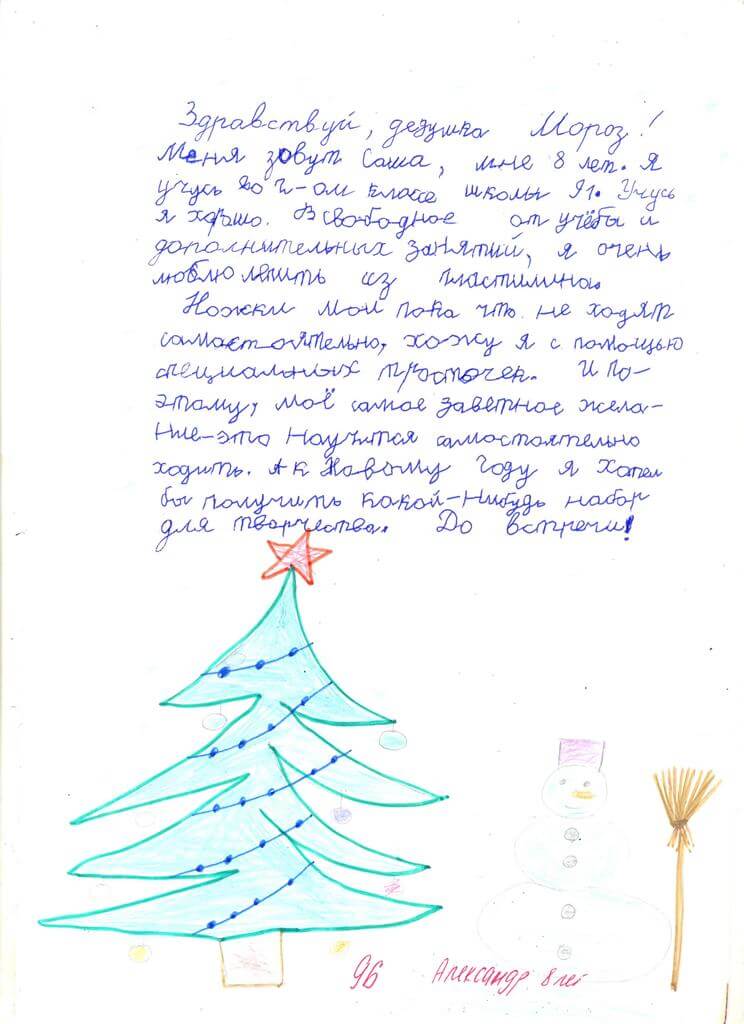 Здравствуй, дедушка Мороз!
Меня зовут Саша, мне 8 лет. Я
учусь во 2-ом классе школы 91. Учусь
я хорошо. В свободное от учёбы и
дополнительных занятий, я очень
люблю лепить из пластилина.
Ножки мои пока что не ходят
самастоятельно, хожу я с помощью
специальных тросточек. И по-
этому, моё самое заветное жела-
ние-это научится самостоятельно
ходить. А к Новому году я хотел
бы получить какой-нибудь набор
для творчества. До встречи!
96 Александр 8 лет